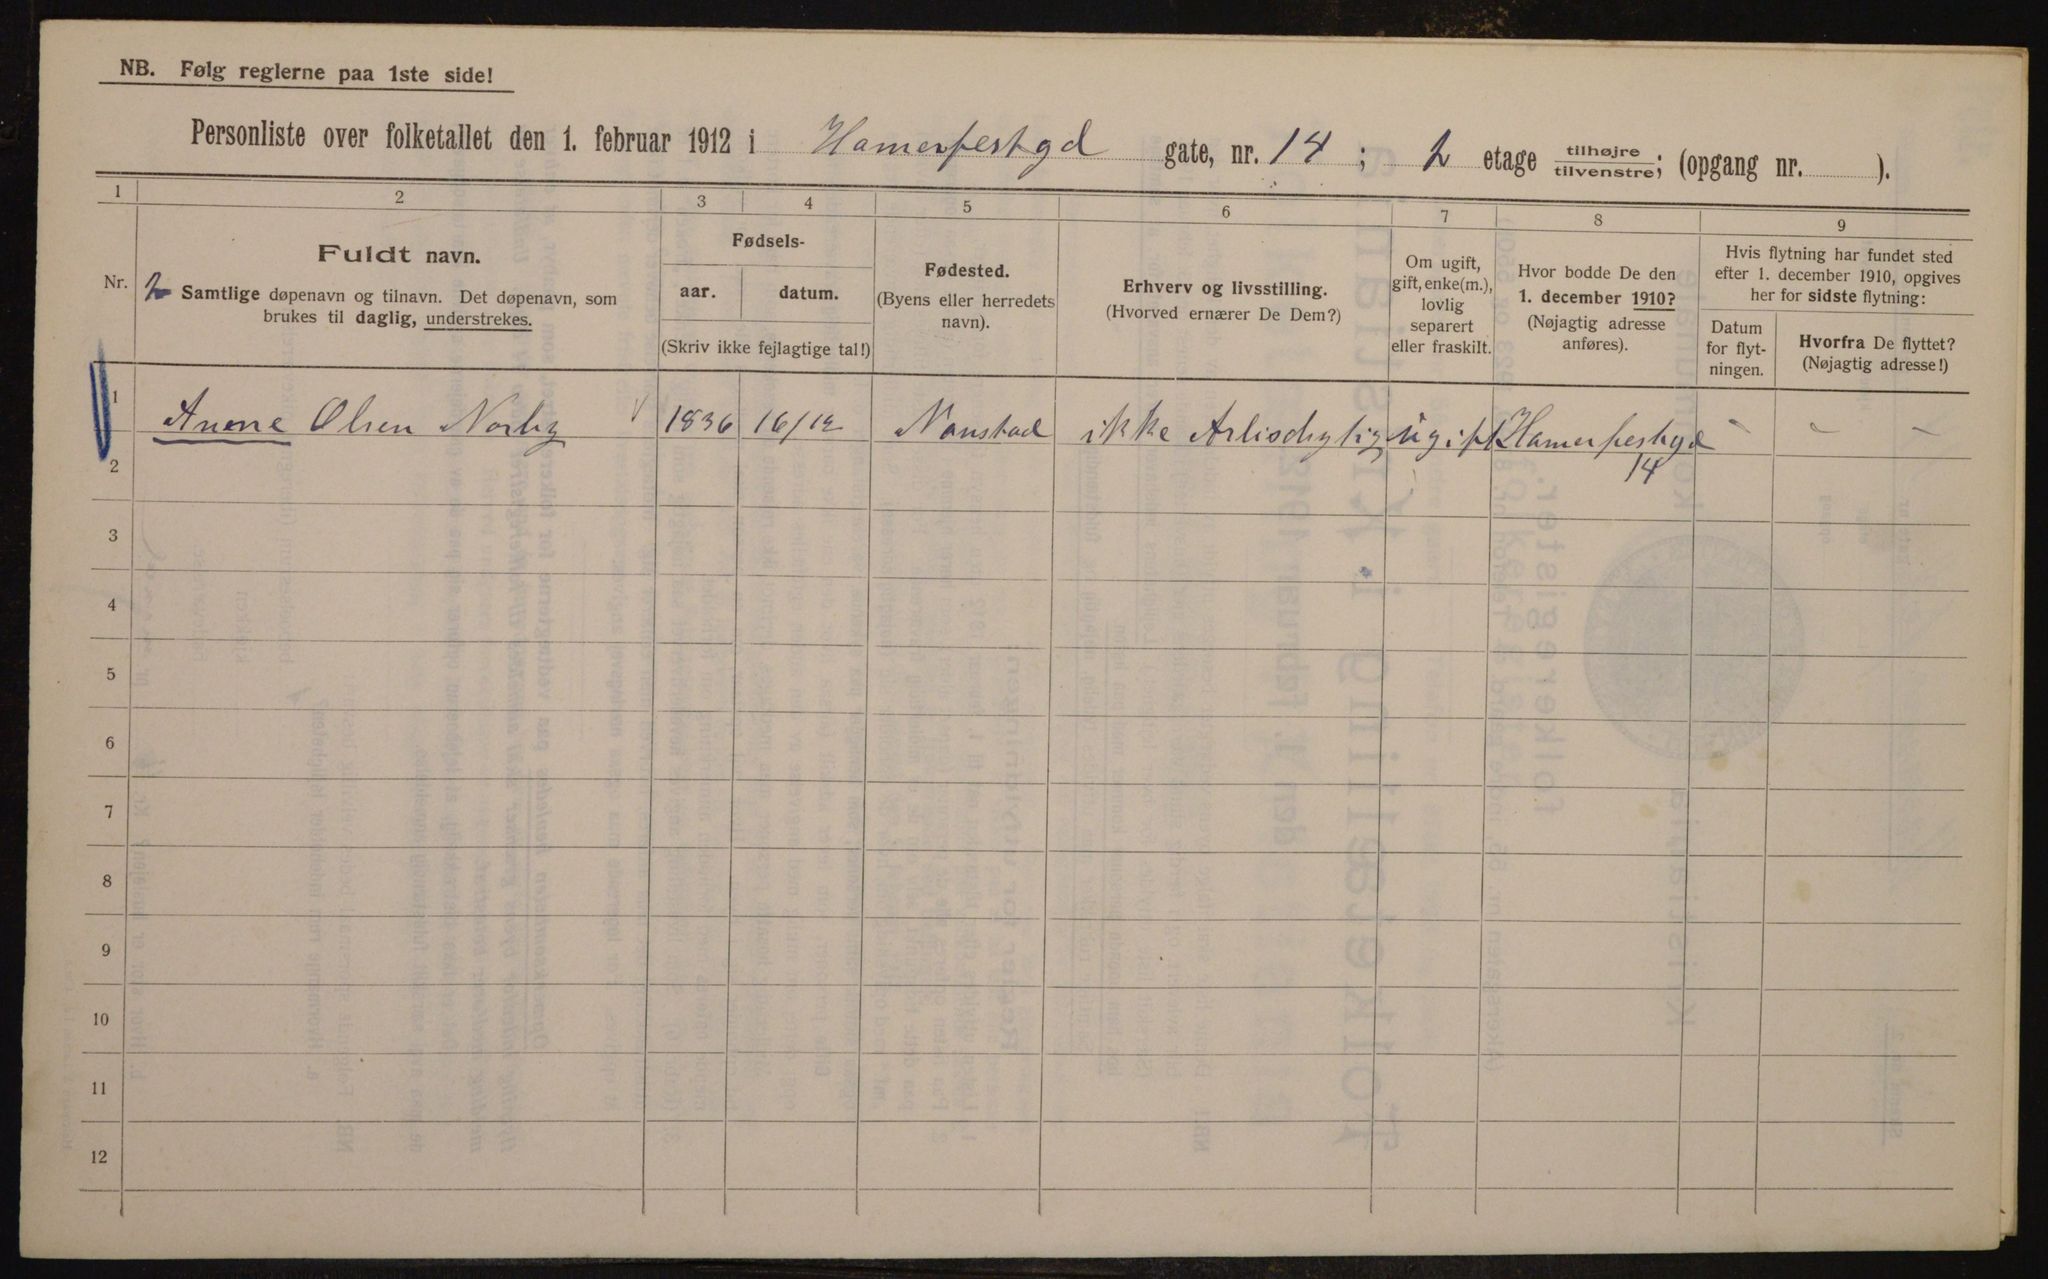 NB. Følg reglerne paa 1ste side!
Personliste over folketallet den 1. februar 1912 i Hamerfestgd gate, nr. 14 ; 2 etage tilhøjre/tilvenstre; (opgang nr. ).
1 2 3 4 5 6 7 8 9
Nr.
2
Fuldt navn.
Samtlige døpenavn og tilnavn. Det døpenavn, som
brukes til daglig, understrekes.
Fødsels-
aar. datum.
(Skriv ikke fejlagtige tal!)
Fødested.
(Byens eller herredets
navn).
Erhverv og livsstilling.
(Hvorved ernærer De Dem?)
Om ugift,
gift, enke(m.),
lovlig
separert
eller fraskilt.
Hvor bodde De den
1. december 1910?
(Nøjagtig adresse
anføres).
Hvis flytning har fundet sted
efter 1. december 1910, opgives
her for sidste flytning:
Datum
for flyt-
ningen.
Hvorfra De flyttet?
(Nøjagtig adresse!)
1 Anene Olsen Norby 1836 16/12 Nanstad ikke Arbisdygtig ugift Hamerfestgd - - -
14
2
3
4
5
6
7
8
9
10
11
12